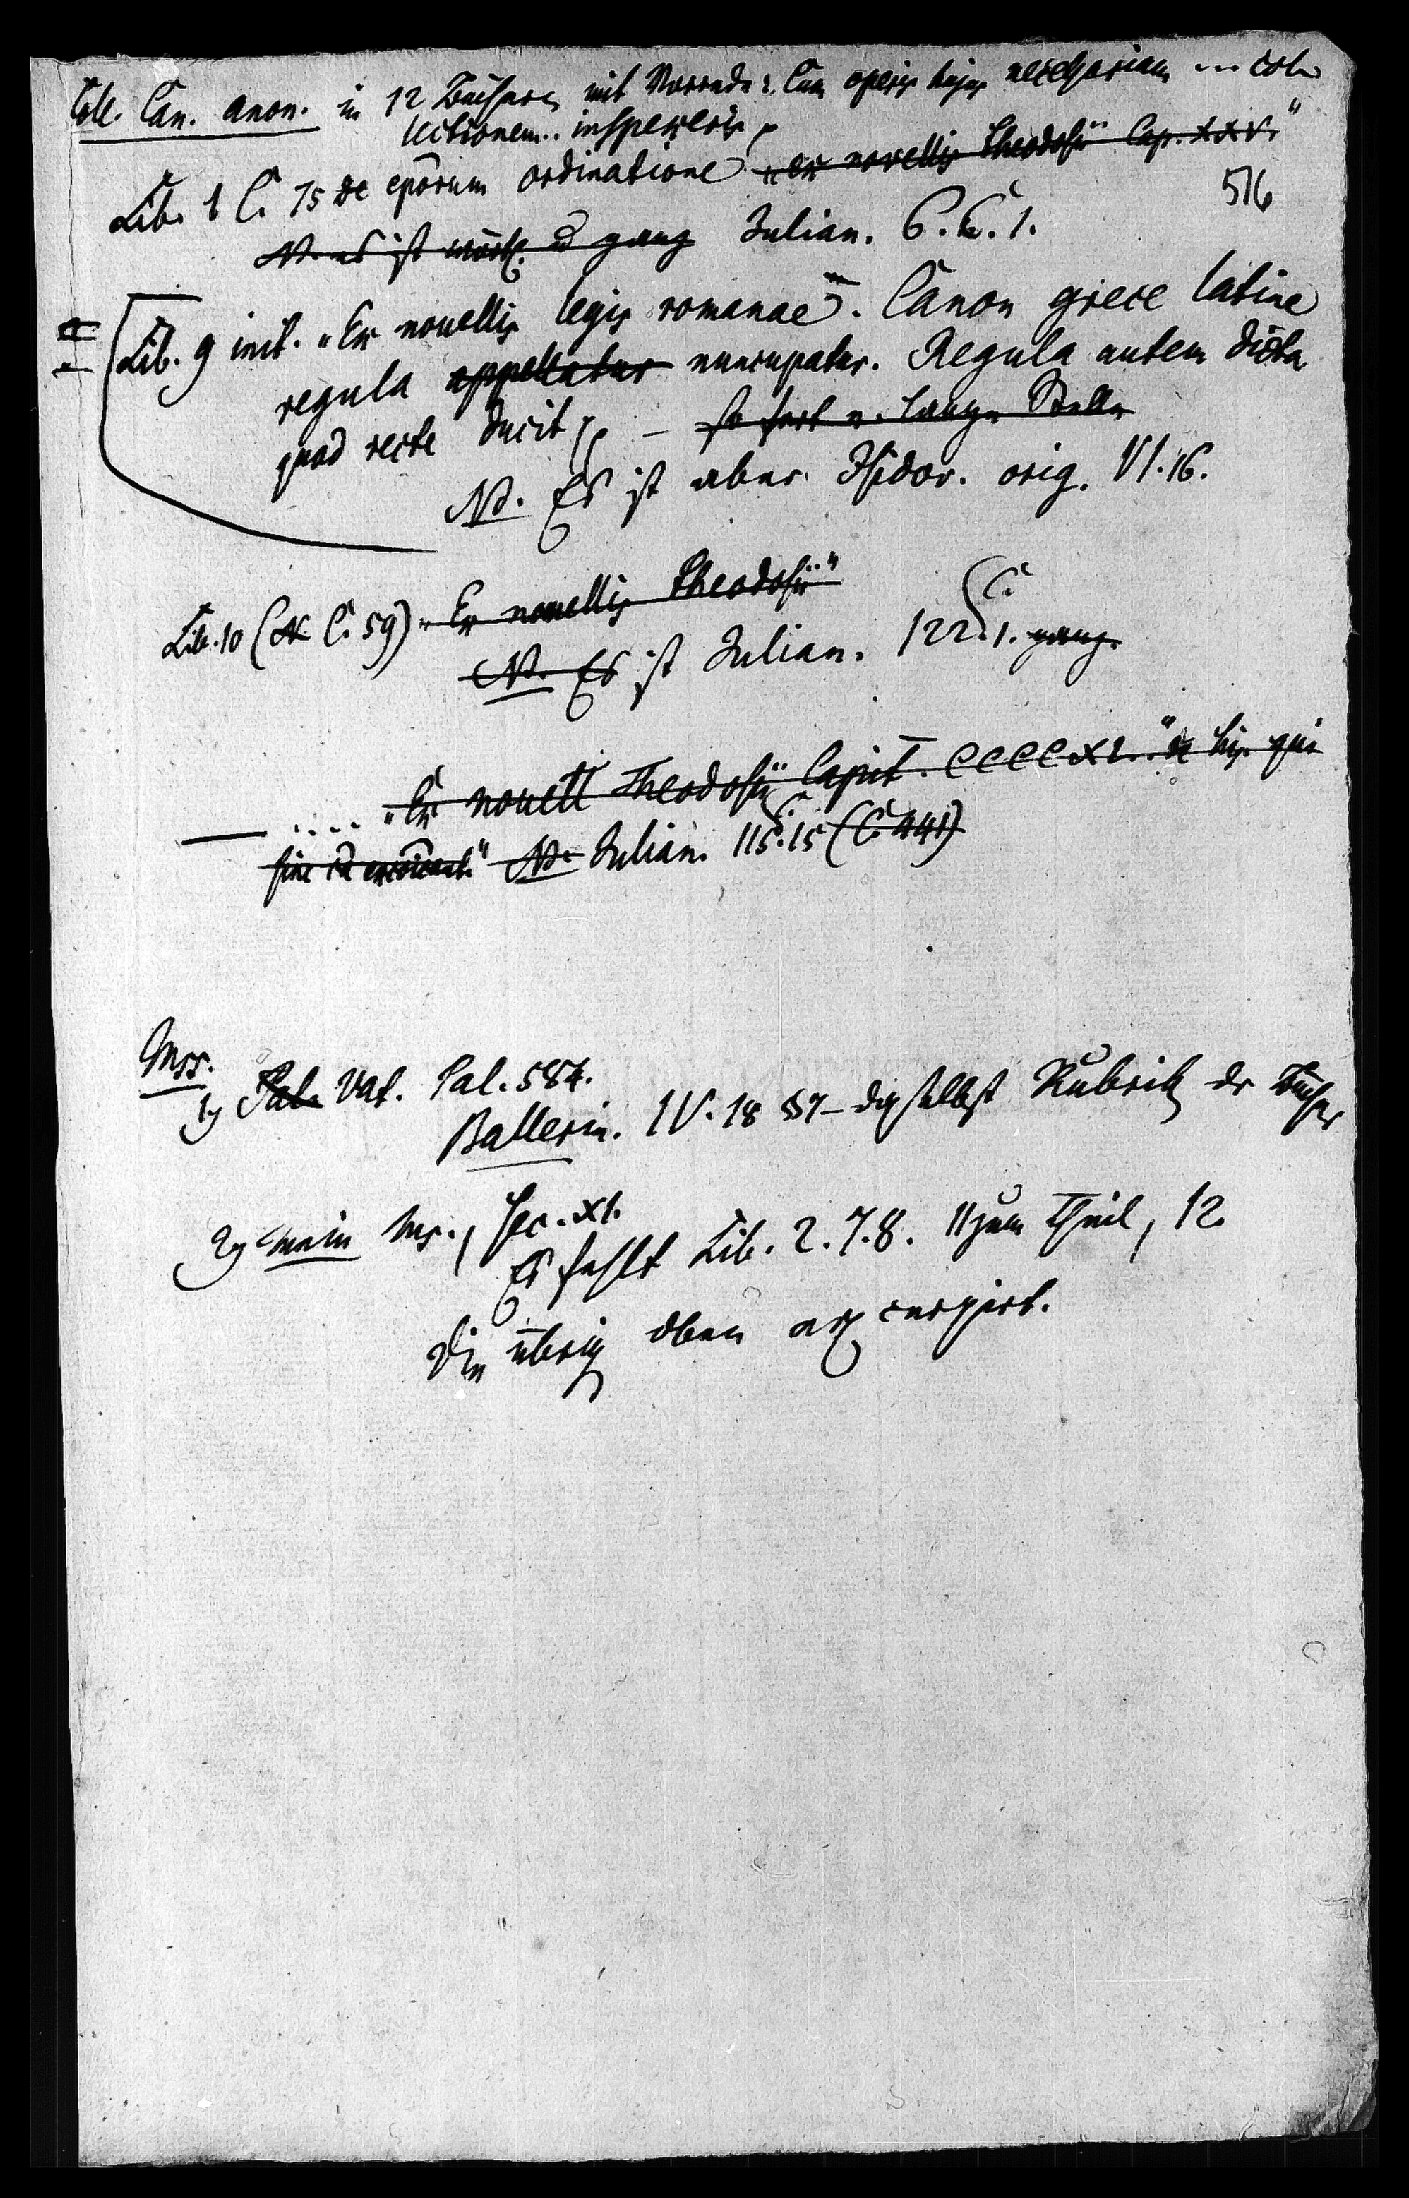 Coll. Can. anon. in 12 Büchern mit Vorrede: Cum operis hujus necessariam ... col-
lectionem .. inspexeris
Lib. 1 C. 75 de eporum ordinatione „ex novellis Theodosii Cap. XXV."
516
NB. es ist wörtl. ganz Julian. 6. C. 1.
Lib. 9 init. „Ex novellis legis romanae. Canon grece latine
regula appellatur nuncupatur. Regula autem dicta
quod recte ducit — so fort e. lange Stelle
NB. Es ist aber Isidor. orig. VI. 16.
Lib. 10 (C. 59) „Ex novellis Theodosii"
NB. Es ist Julian. 122. C. 1. ganz.
— .... „Ex novell Theodosii Capit. CCCCXL. de his qui
sine" NB. Julian. 115. C. 15 (C. 441)
Mss.
1) Pal. Vat. Pal. 584.
Ballerin. IV. 18 §7 – daselbst Rubrik der Bücher
2) mein Ms., sec. XI.
Es fehlt Lib. 2. 7. 8. 11 zum Theil, 12
Die übrig oben excerpirt.